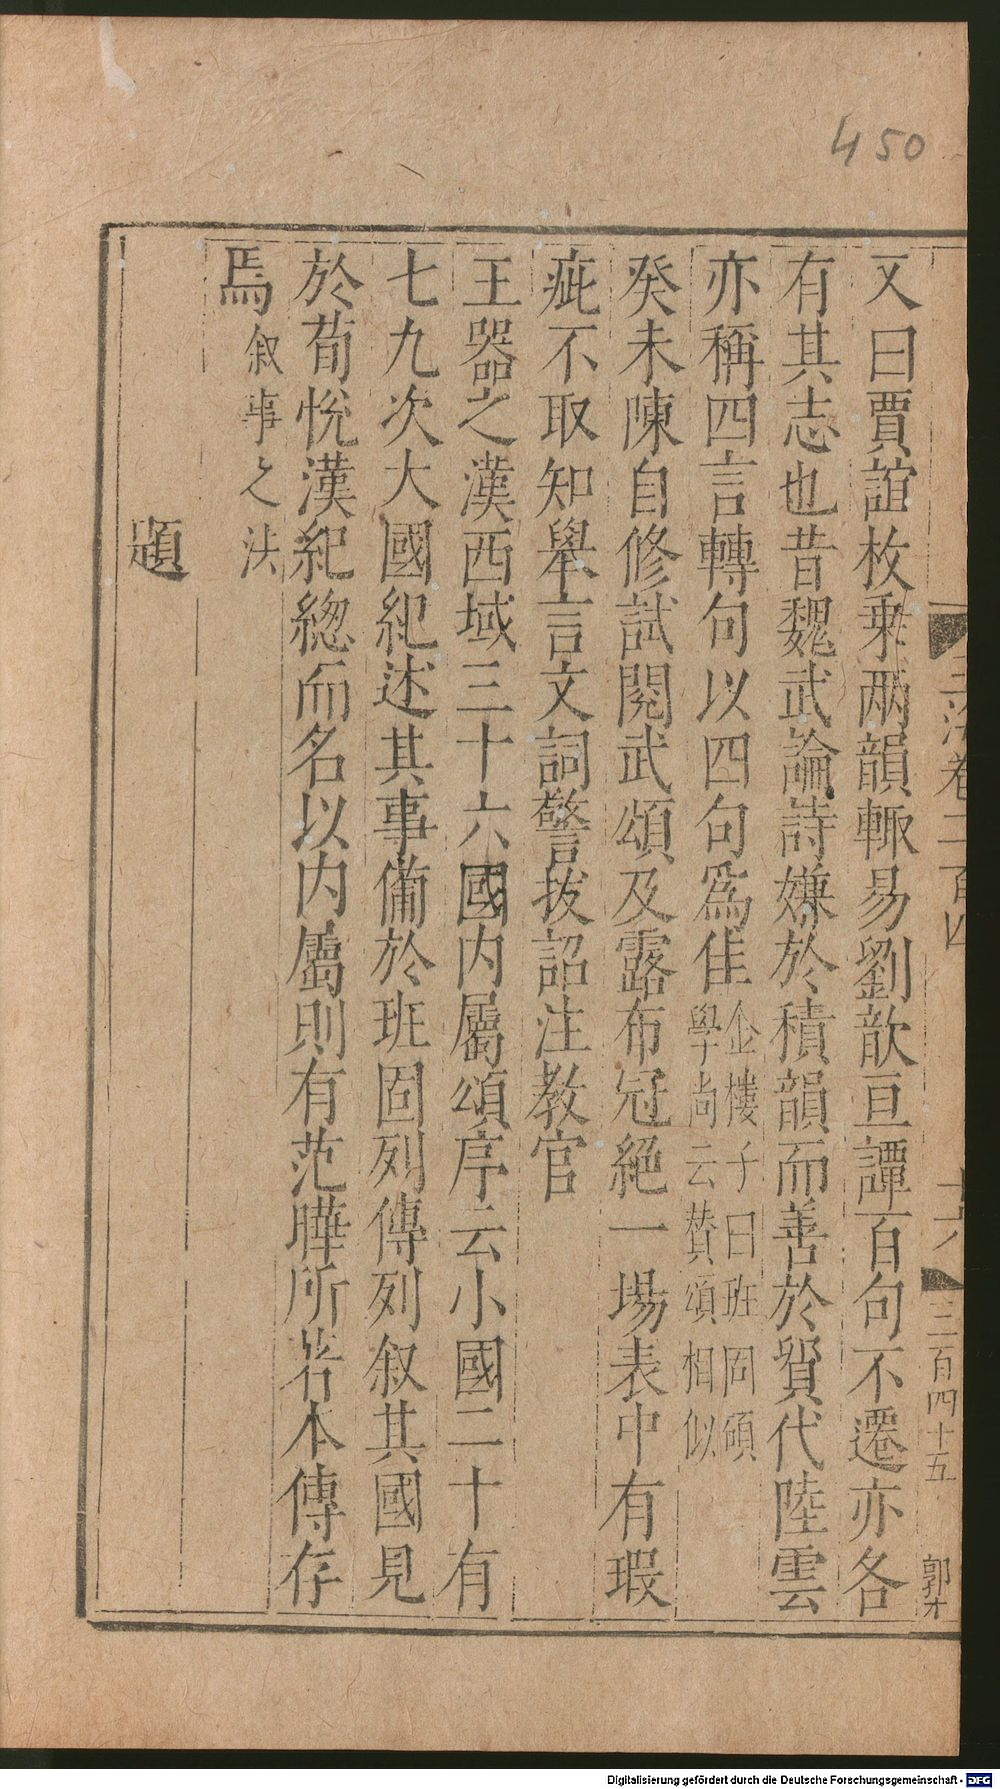 450
玉海卷二百四
十六
三百四十五
郭才
又曰賈誼枚乗兩韻輙易劉歆亘譚百句不遷亦各
有其志也昔魏武論詩嫌於積韻而善於貿代陸雲
亦稱四言轉句以四句爲佳
金樓子曰班固碩
學尚云賛頌相似
癸未陳自修試閱武頌及露布冠絕一場表中有瑕
疵不取知舉言文詞警拔詔注教官
王器之漢西域三十六國内屬頌序云小國二十有
七九次大國紀述其事備於班固列傳列叙其國見
於荀悅漢紀緫而名以内屬則有范曄所著本傳存
焉
叙事之法
題
Digitalisierung gefördert durch die Deutsche Forschungsgemeinschaft - DFG